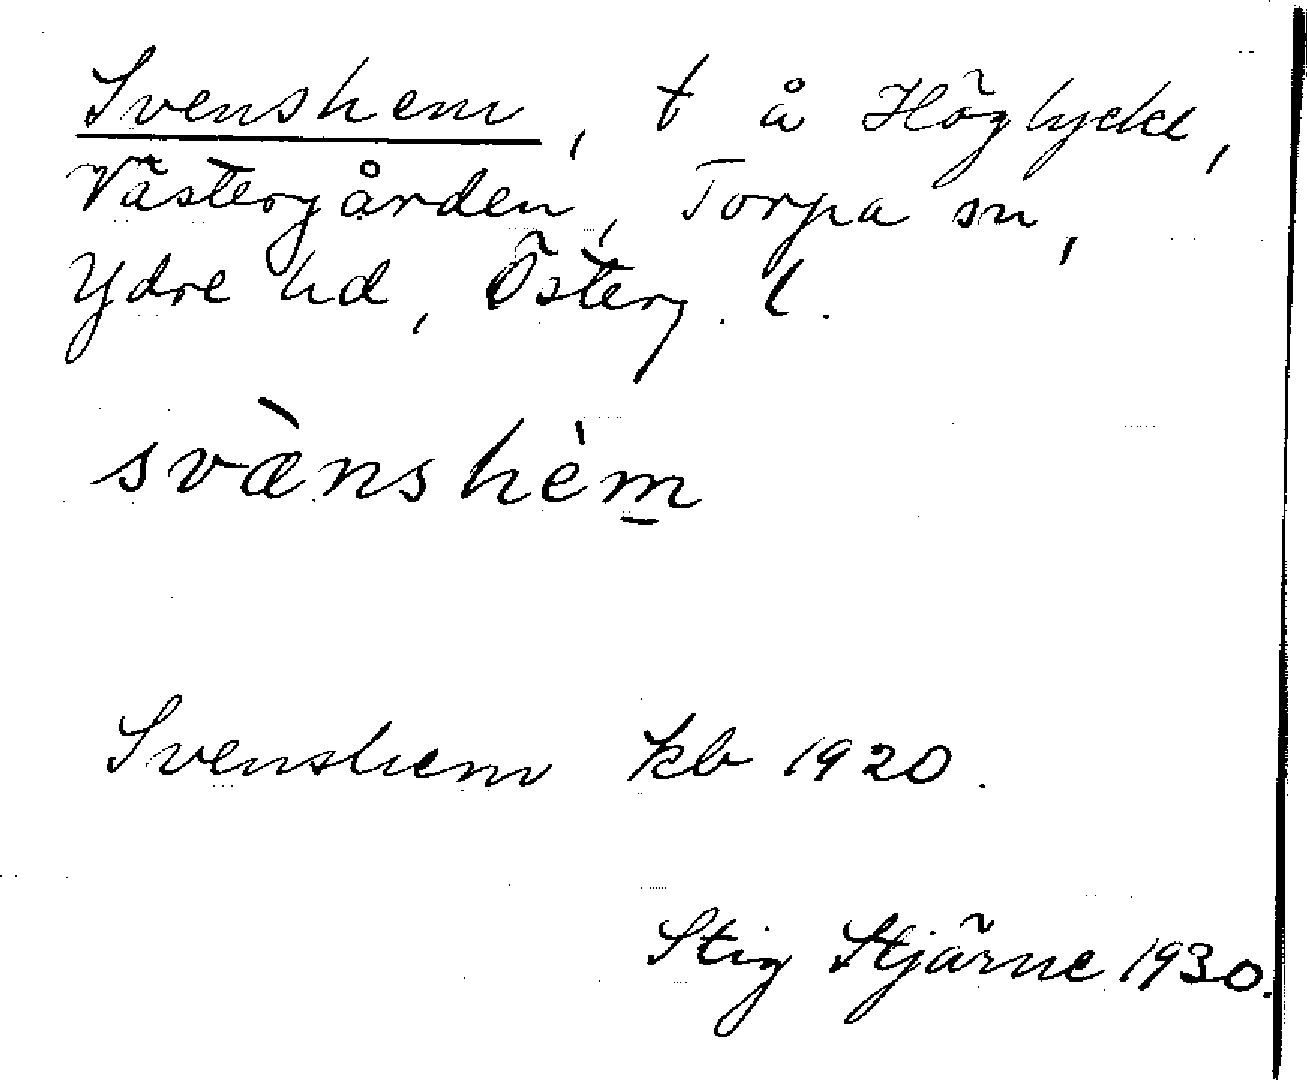 Svenshem, t å Höglycke,
Västergården, Torpa sn,
Ydre hd, Österg. l.
svæ̀nshèm̲
Svenshem kb 1920.
Stig Stjärne 1930.